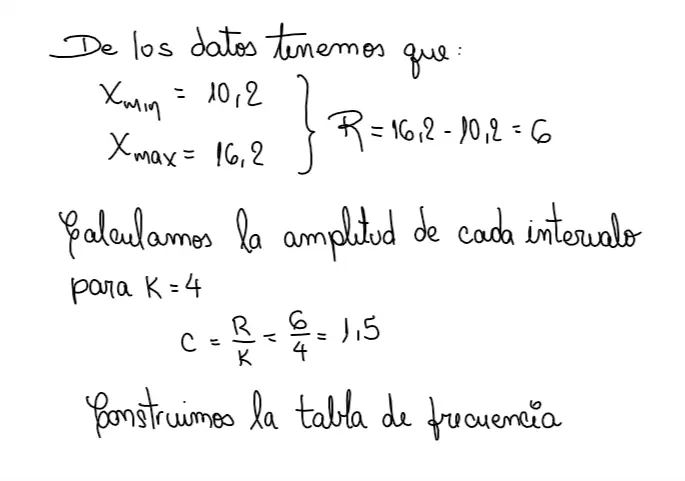 De los datos tenemos que:
Xmin = 10,2
Xmax = 16,2
} R = 16,2 - 10,2 = 6
Calculamos la amplitud de cada intervalo
para K = 4
C = R/K = 6/4 = 1,5
Construimos la tabla de frecuencia